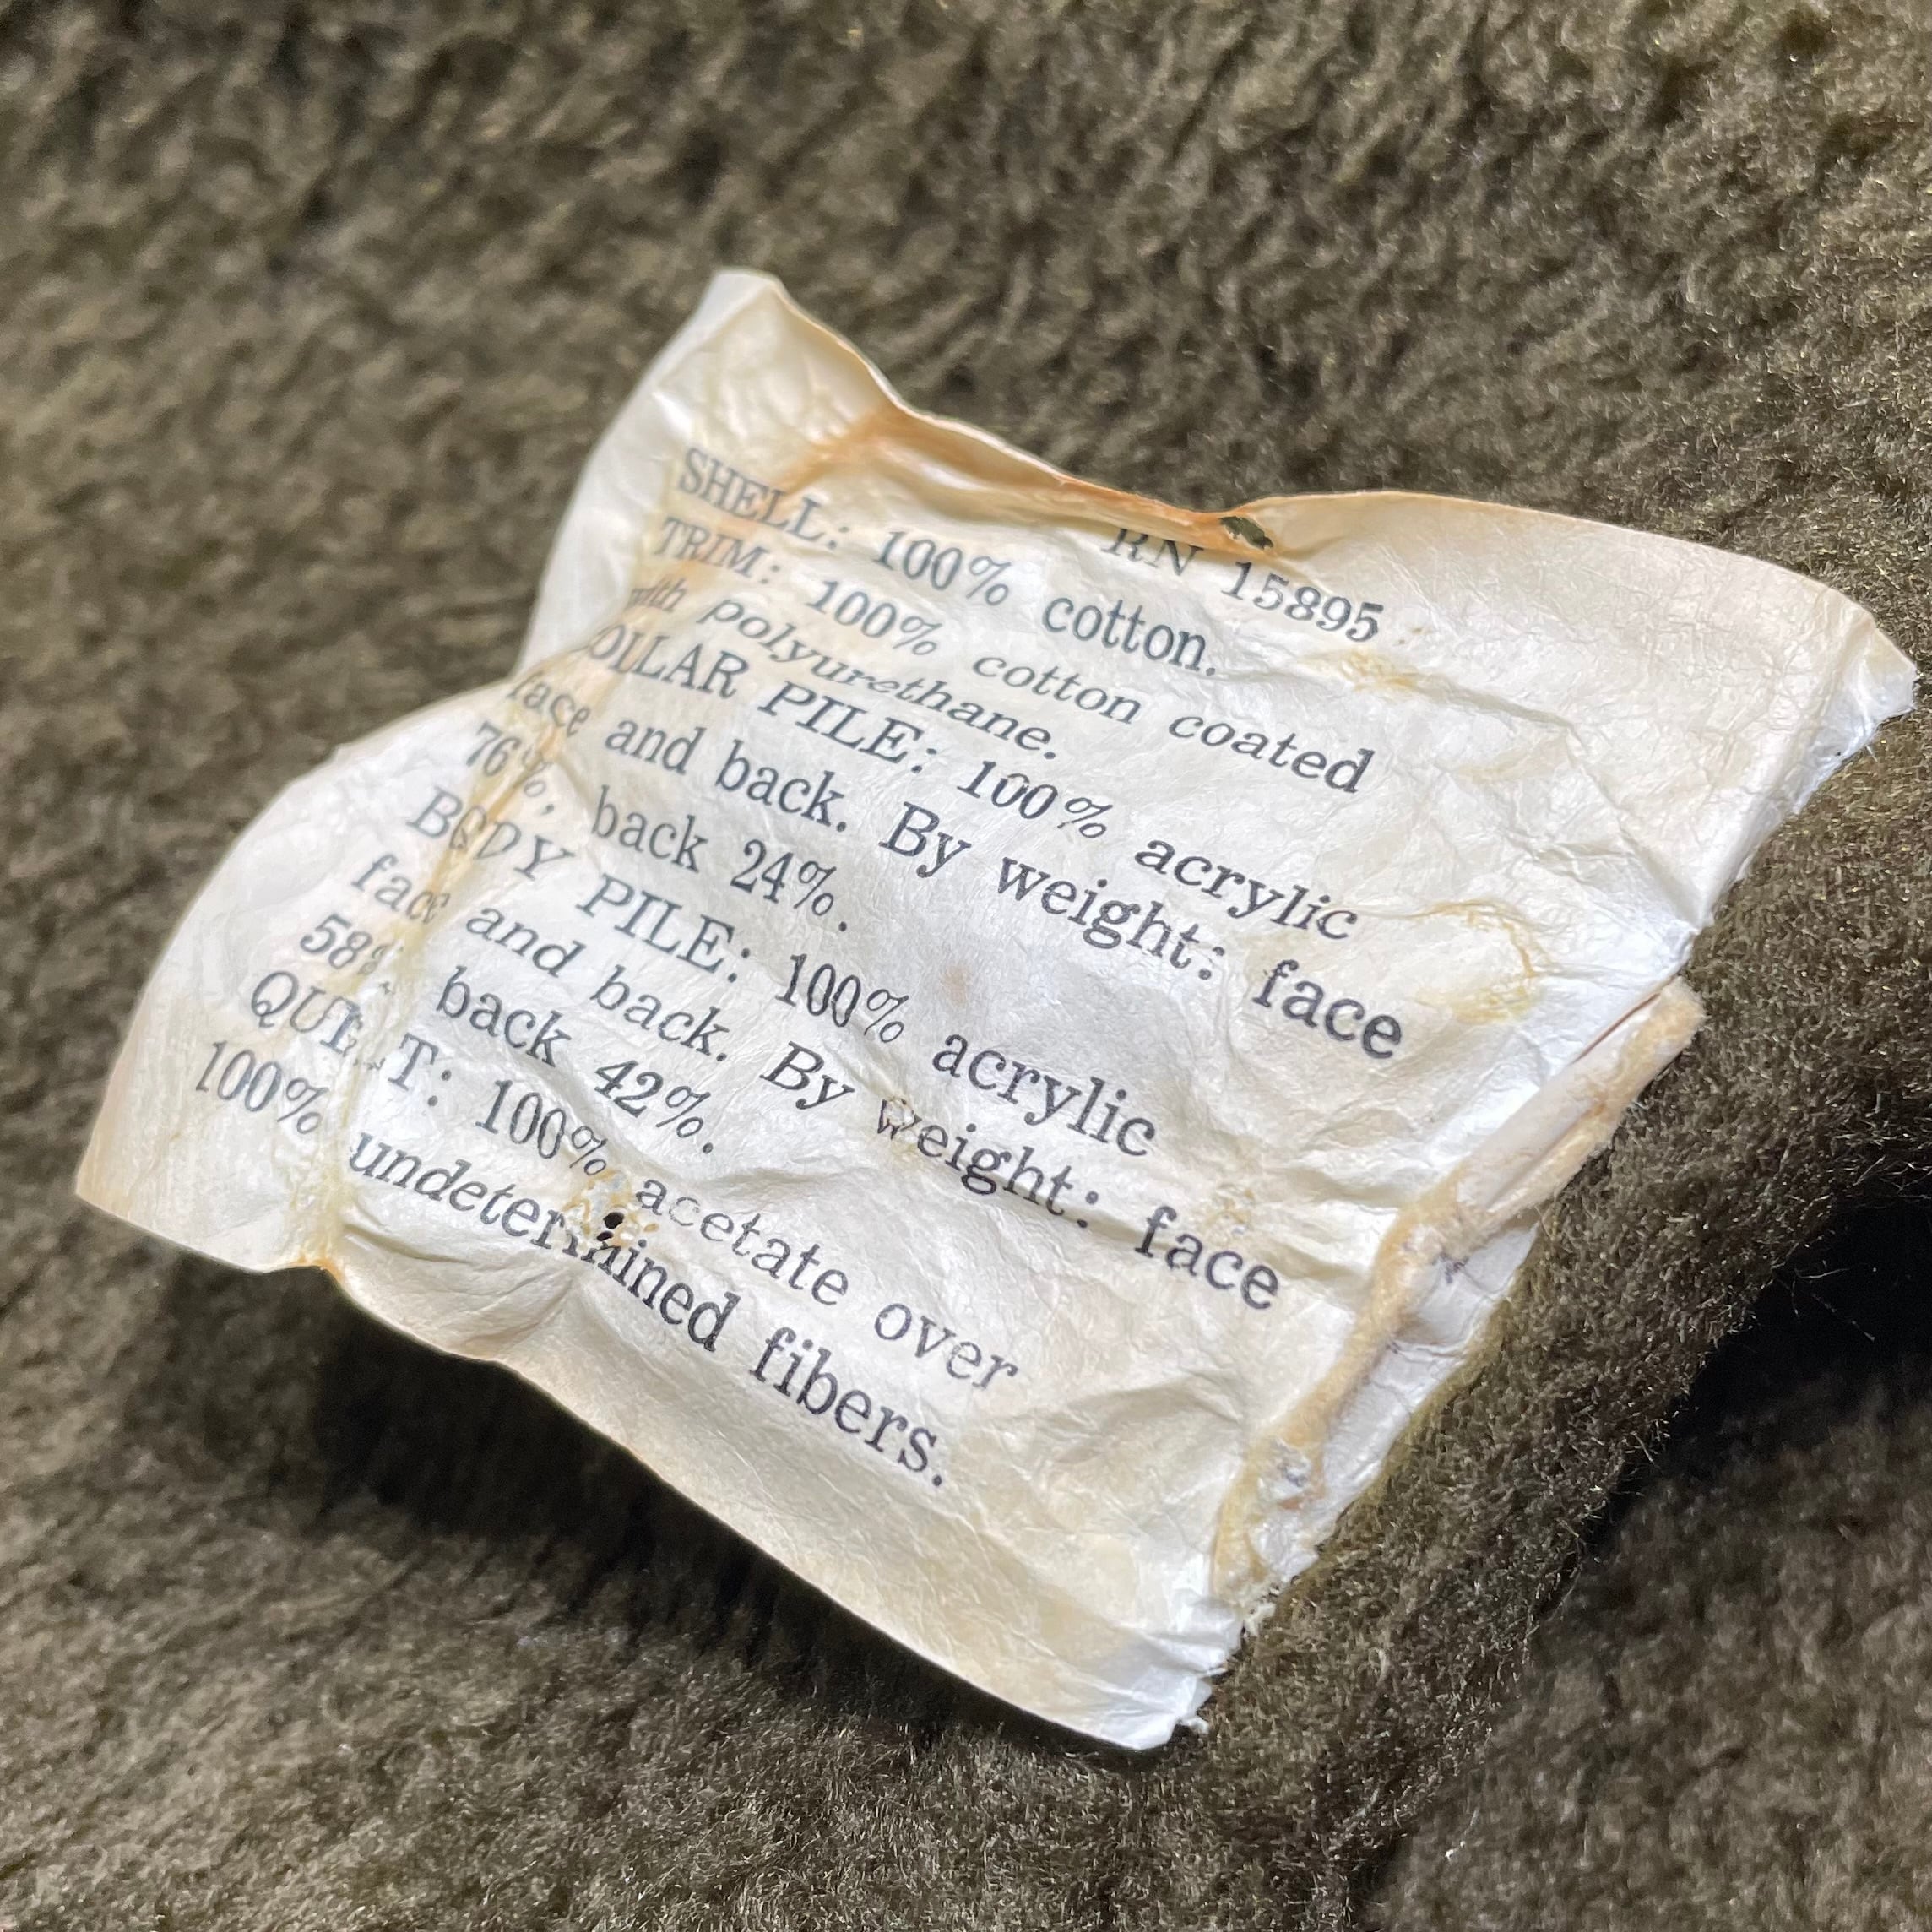 RN 15895
SHELL: 100% cotton.
TRIM: 100% cotton coated
with polyurethane.
COLLAR PILE: 100% acrylic
face and back. By weight: face
76%, back 24%.
BODY PILE: 100% acrylic
face and back. By weight: face
58% back 42%.
QUILT: 100% acetate over
100% undetermined fibers.